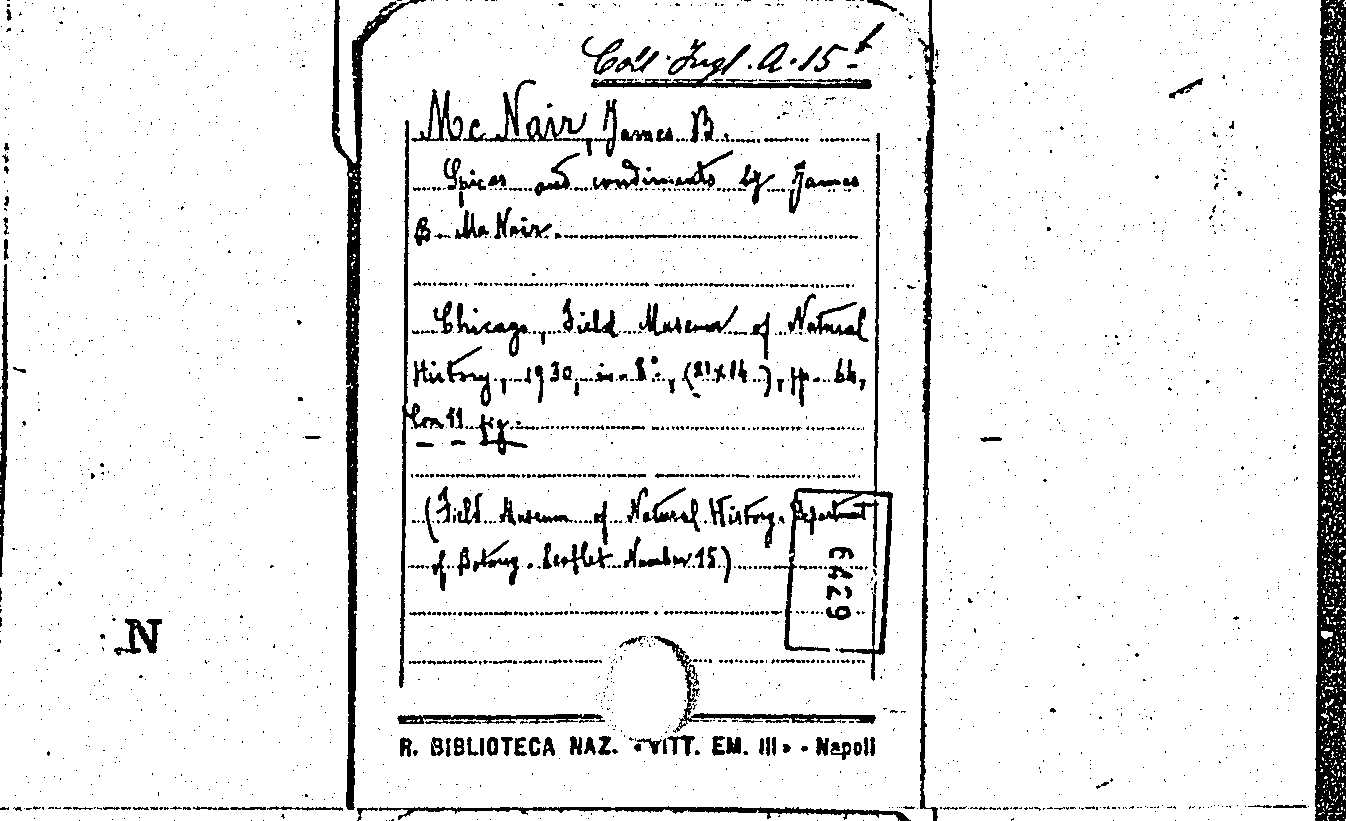 Coll. Ingl. A. 15 b
Mc Nair, James B.
Spices and condiments by James
B. Mc Nair.
Chicago, Field Museum of Natural
History, 1930, in-8°, (21x14), pp. 64,
Con 11 fig.
(Field Museum of Natural History. Department
of Botany. Leaflet Number 15)
6429
N
R. BIBLIOTECA NAZ. «VITT. EM. III» - Napoli